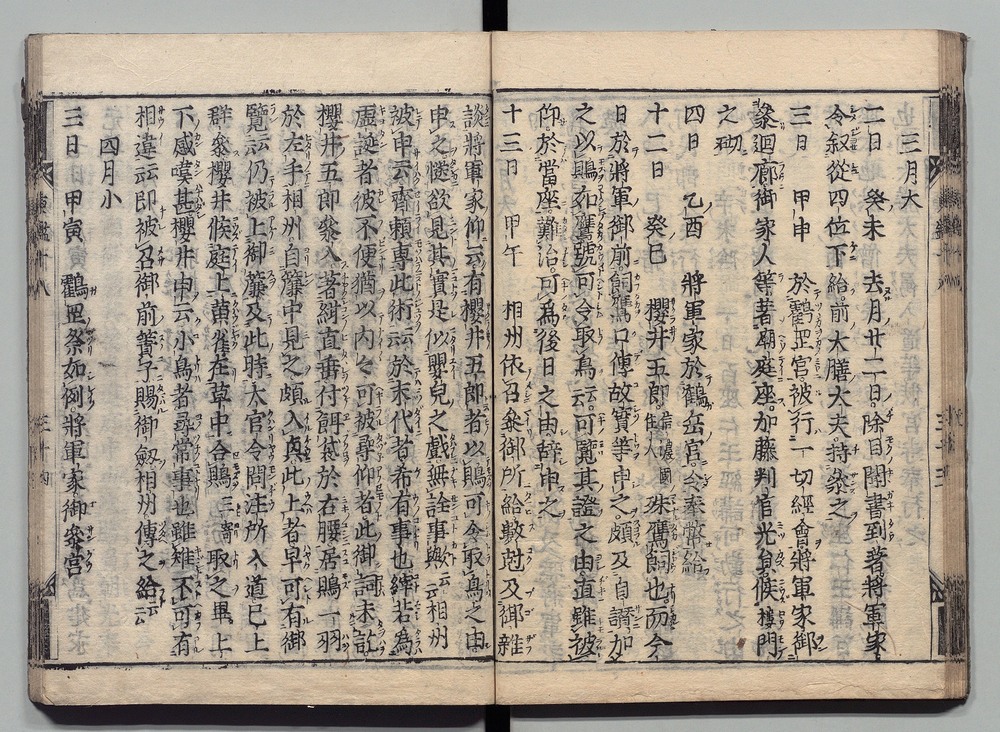 三月大
二日 癸未 去月廿二日除目聞書到著將軍家
令叙從四位下給前大膳大夫持參之
三日 甲申 於鶴岳宮被行一切經會將軍家御
參廻廊御家人等著廟庭座加藤判官光員候樓門
之砌
四日 乙酉 將軍家於鶴岳宮令奉幣給
十二日 癸巳 櫻井五郎信濃國住人殊鷹飼也而今
日於將軍御前飼鷹口傳故實等申之頗及自讃加
之以鵙如鷹號可令取鳥云云可覽其證之由直雖被
仰於當座難治可為後日之由辞申之
十三日 甲午 相州依召參御所給數尅及御雜
談將軍家仰云有櫻井五郎者以鵙可令取鳥之由
申之慥欲見其實是似嬰兒之戲無詮事歟云云相州
被申云齊頼專此術云云於末代者希有事也縡若為
虚誕者彼不便猶以内々可被尋仰者此御詞未訖
櫻井五郎參入著紺直垂付餌袋於右腰居鵙一羽
於左手相州自簾中見之頗入興此上者早可有御
覽云云仍被上御簾及此時大官令問注所入道已上
群參櫻井候庭上黄雀在草中合鵙三寄取之畢上
下感嘆甚櫻井申云小鳥者尋常事也雖雉不可有
相違云云即被召御前簀子賜御劔相州傳之給云云
四月小
三日 甲寅 鶴岳祭如例將軍家御參宮
三十四